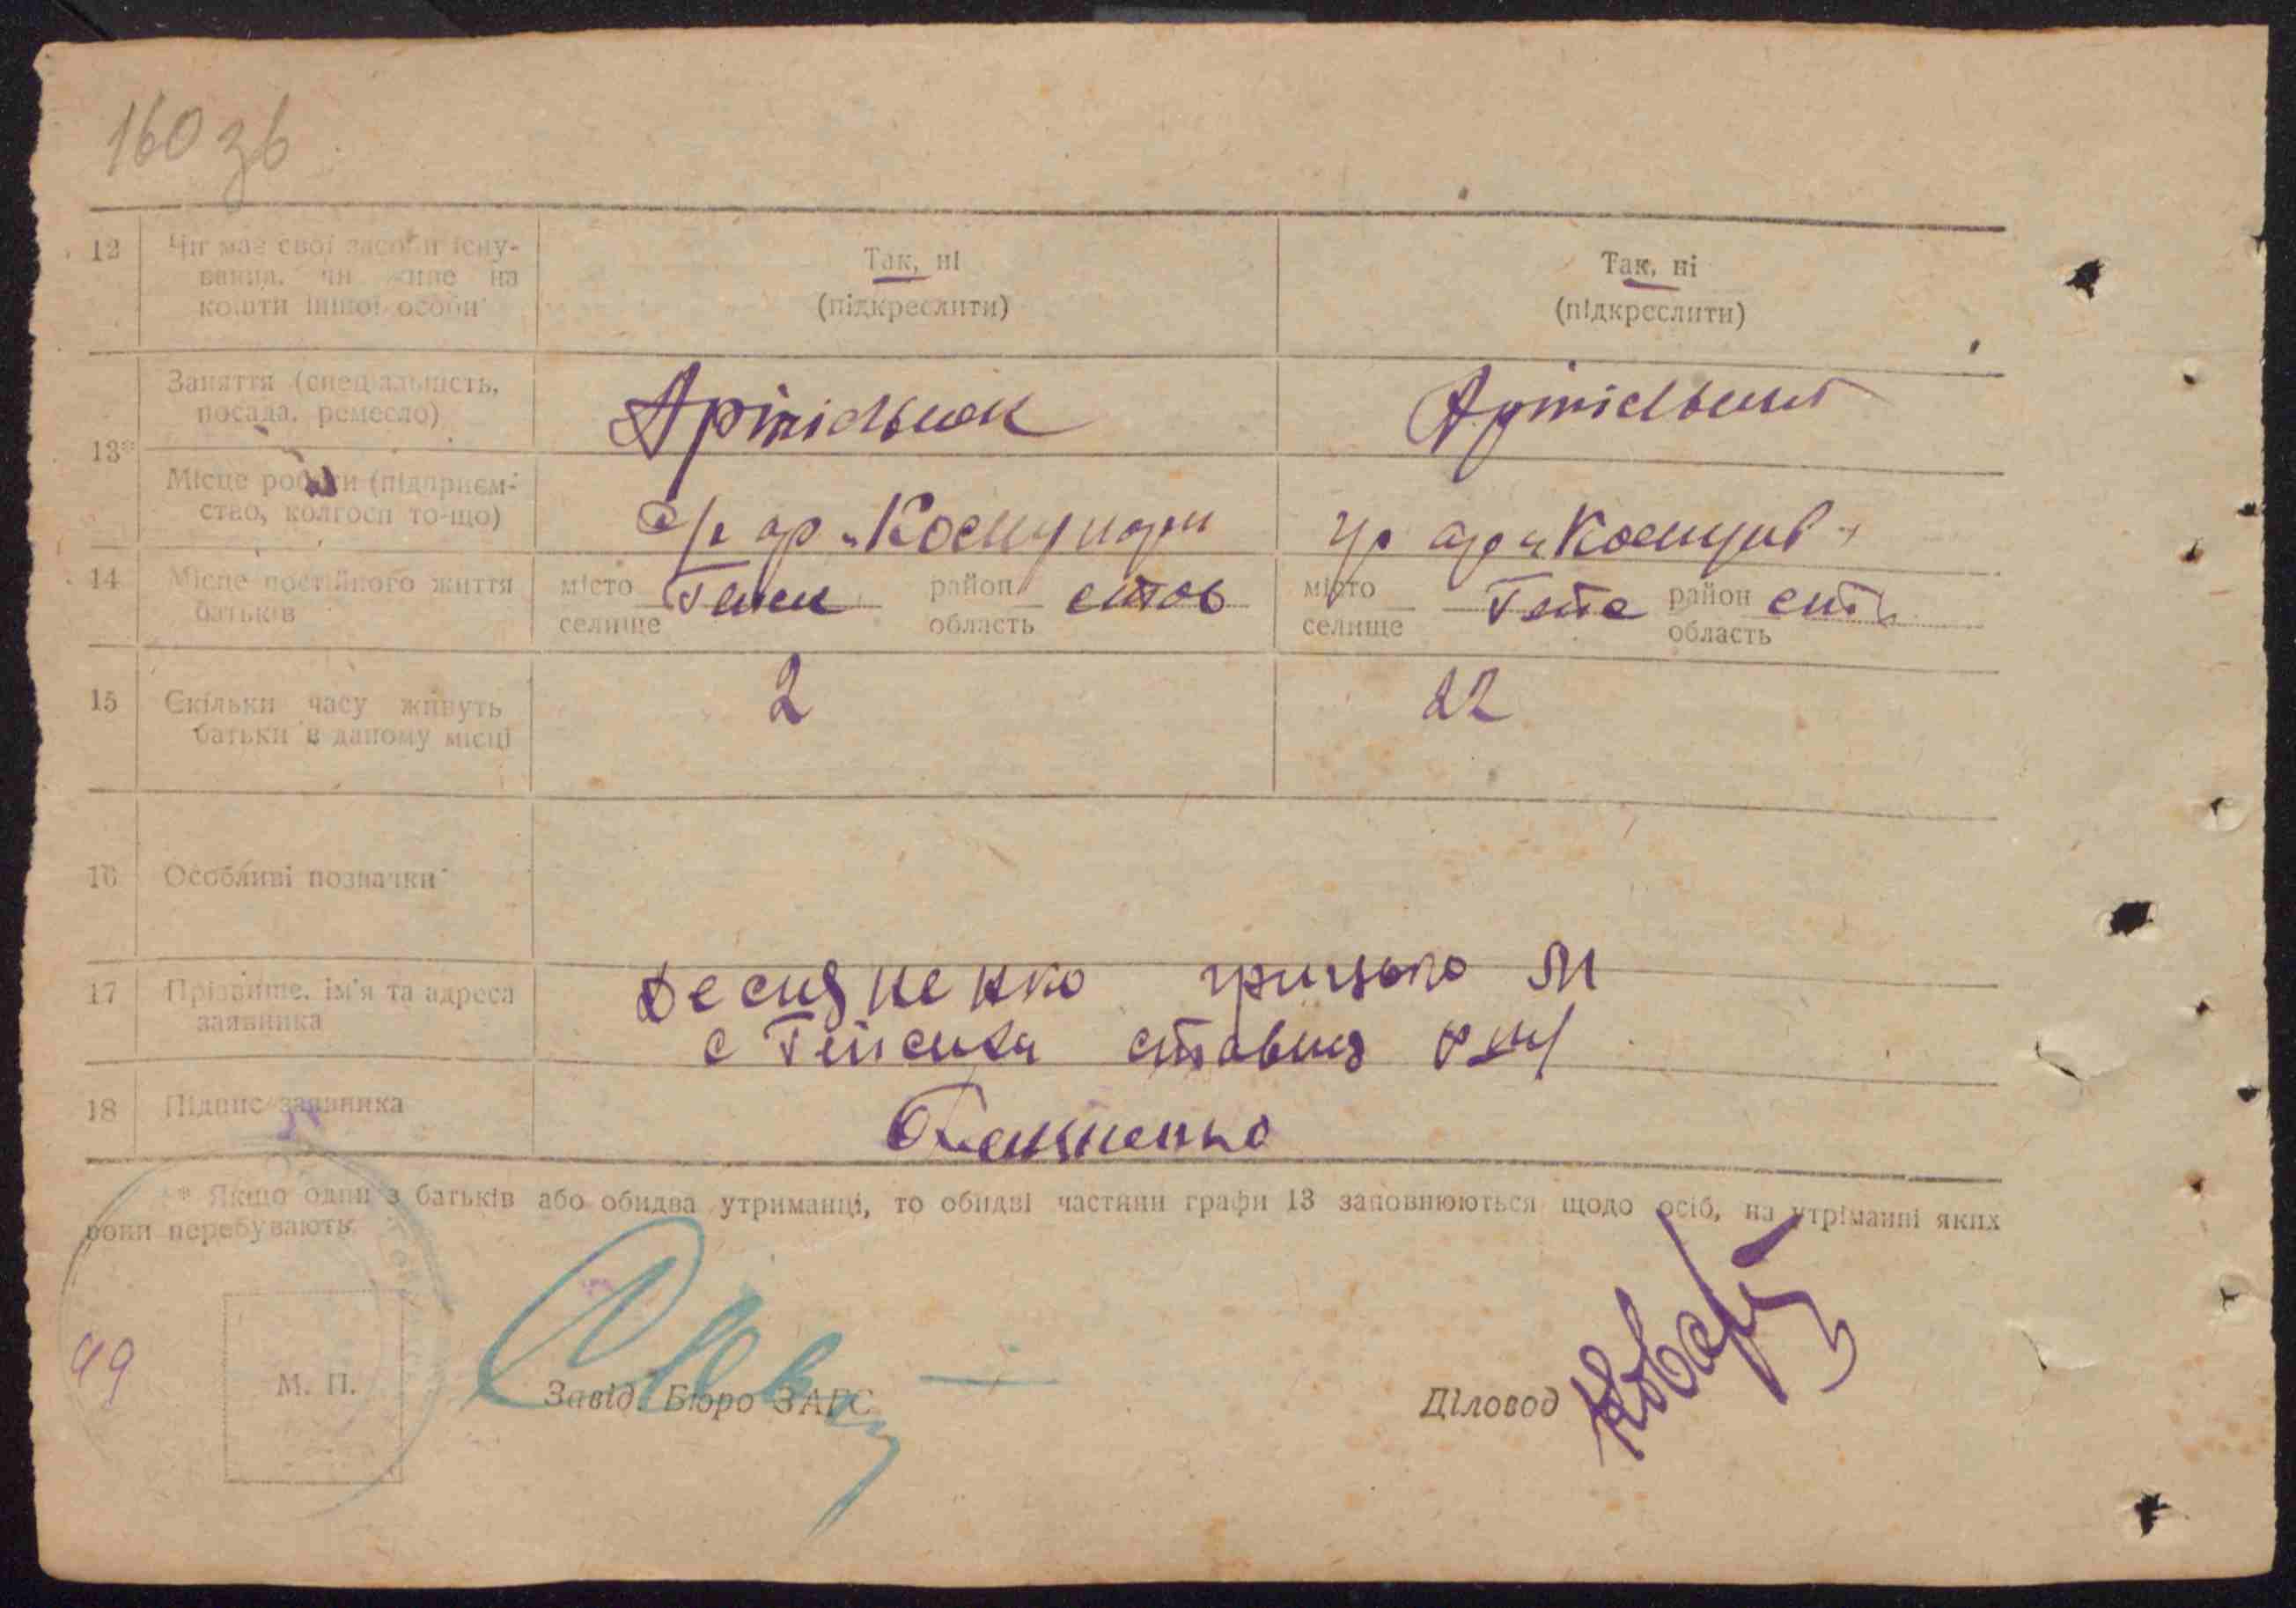 160 зв
12 Чи має свої засоби існу-
вання, чи живе на
кошти іншої особи
Так, ні
(підкреслити)
Так, ні
(підкреслити)
13*
Заняття (спеціальність,
посада, ремесло)
Артільник
Артільниця
Місце роботи (підприєм-
ство, колгосп то-що)
14 Місце постійного життя
батьків
місто
селище
район
область
став
місто
селище
район
область
15 Скільки часу живуть
батьки в даному місці
2
22
16 Особливі позначки
17 Прізвище, ім'я та адреса
заявника
Грицько М
с
18 Підпис заявника
* Якщо один з батьків або обидва утриманці, то обидві частини графи 13 заповнюються щодо осіб, на утріманні яких
вони перебувають
М. П.
Завід. Бюро ЗАГС
Діловод